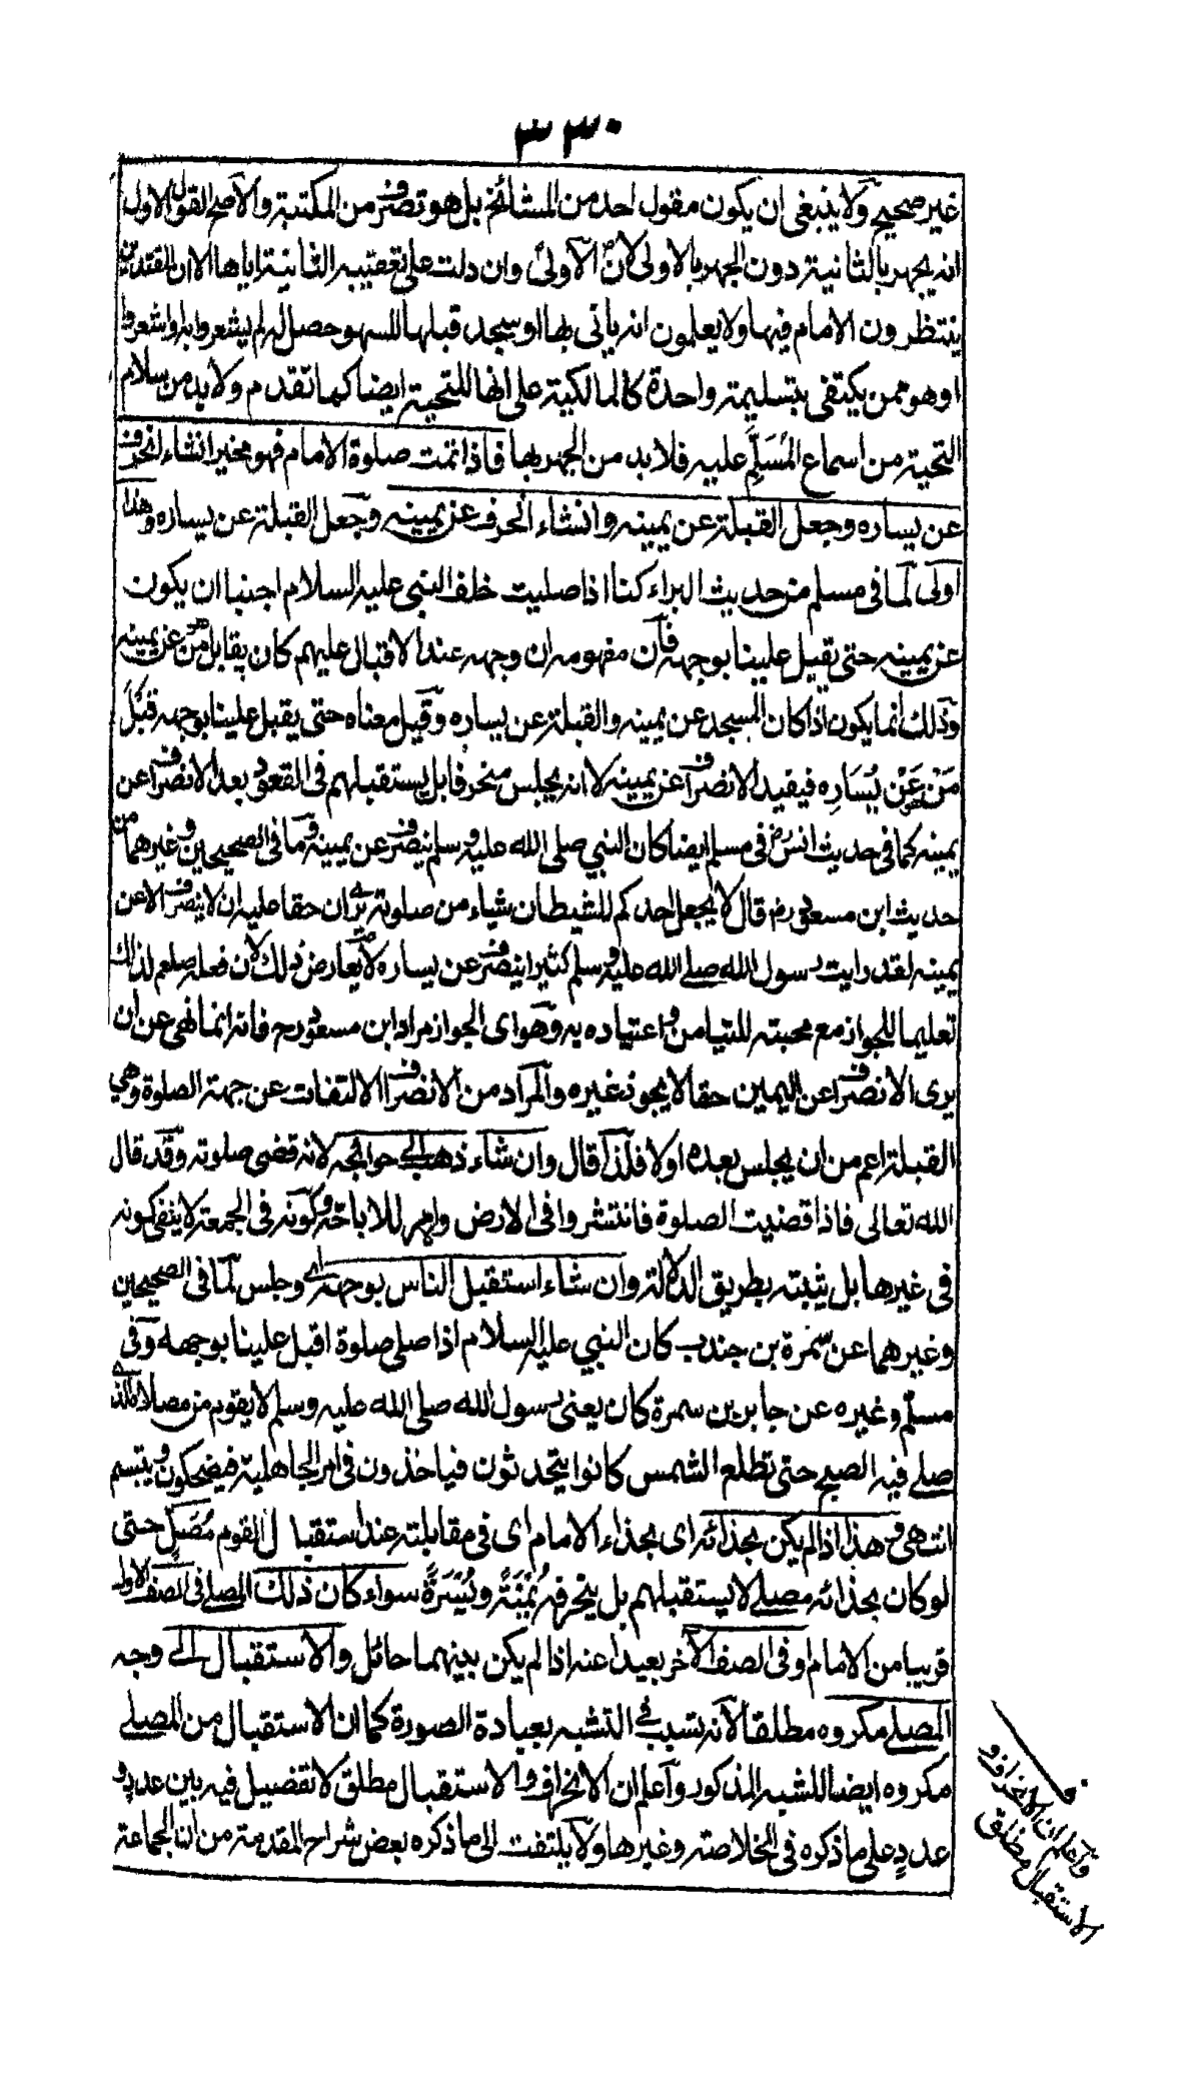 ٣٣٠
غير صحيح ولا ينبغى ان يكون مقول احد من المشائخ بل هو تصرف من المكتبة والاصح القول الاول
انه يجهر بالثانية دون الجهر بالاولى لان الاولى وان دلت على تعقيب الثانية اياها الا ان المقتدين
ينتظرون الامام فيها ولا يعلمون انه ياتى بها او يسجد قبلها للسهو حصل له لم يشعروا به او شعروا
او هو ممن يكتفى بتسليمة واحدة كالمالكية على انها للتحية ايضا كما تقدم ولابد من سلام
التحية من اسماع المُسَلَّمِ عليه فلا بد من الجهر بها فاذا تمت صلوة الامام فهو مخير ان شاء انحرف
عن يساره وجعل القبلة عن يمينه وان شاء انحرف عن يمينه وجعل القبلة عن يساره وهذا
اولى لما فى مسلم من حديث البراء كنا اذا صليت خلف النبى عليه السلام اجنبا ان يكون
عن يمينه حتى يقبل علينا بوجهه فان مفهومه ان وجهه عند الاقبال عليهم كان يقابل من هو عن يمينه
وذلك انما يكون اذا كان المسجد عن يمينه والقبلة عن يساره وقيل معناه حتى يقبل علينا بوجهه قبل
مَنْ عَنْ يُسَارِه فيفيد الانصراف عن يمينه لا انه يجلس منحرفا بل يستقبلهم فى القعود بعد الانصراف عن
يمينه كما فى حديث انس رض فى مسلم ايضا كان النبي صلى الله عليه وسلم ينصرف عن يمينه وما فى الصحيحين وغيرهما من
حديث ابن مسعود رض قال لا يجعل احدكم للشيطان شياء من صلوته يرى ان حقا عليه ان لا ينصرف الا عن
يمينه لقد رايت رسول الله صلے الله عليه وسلم كثيرا ينصرف عن يساره لا يعارض ذلك لان فعله صلعم لذلك
تعليما للجواز مع محبته للتيامن واعتياده به وهو اى الجواز مراد ابن مسعود رح فانه انما نهى عن ان
يرى الانصراف عن اليمين حقا لا يجوز غيره والمراد من الانصراف الالتفات عن جهة الصلوة وهي
القبلة اعم من ان يجلس بعده او لا فلذا قال وان شاء ذهب الى حوائجه لانه قضى صلوته وقد قال
الله تعالى فاذا قضيت الصلوة فانتشروا فى الارض والامر للاباحة وكونه فى الجمعة لا ينفى كونه
فى غيرها بل يثبته بطريق الدلالة وان شاء استقبل الناس بوجهه اے وجلس لما فى الصحيحين
وغيرهما عن سمرة بن جندب كان النبي عليه السلام اذا صلى صلوة اقبل علينا بوجهه وفى
مسلم وغيره عن جابر بن سمرة كان يعنى رسول الله صلى الله عليه وسلم لا يقوم من مصلاه الذى
صلے فيه الصبح حتى تطلع الشمس كانوا يتحدثون فياخذون فى امر الجاهلية فيضحكون ويتبسم
انتهى وهذا اذا لم يكن بحذائه اى بحذاء الامام اى فى مقابلته عند استقبال القوم مُصَلٍ حتى
لو كان بحذائه مصلے لا يستقبلهم بل ينحرف يُمْنَةً ويُسْرَةً سواء كان ذلك المصلے فى الصف الاول
قريبا من الامام او فى الصف الآخر بعيدا عنه اذا لم يكن بينهما حائل والاستقبال الے وجه
المصلے مكروه مطلقا لانه تسبب فى التشبه بعبادة الصورة كما ان الاستقبال من المصلے
مكروه ايضا للشبه المذكور واعلم ان الانحراف والاستقبال مطلق لا تفصيل فيه بين عدد و
عددٍ على ما ذكره فى الخلاصة وغيرها ولا يلتفت الى ما ذكره بعض شراح المقدمة من ان الجماعة
واعلم ان الانحراف و
الاستقبال مطلق